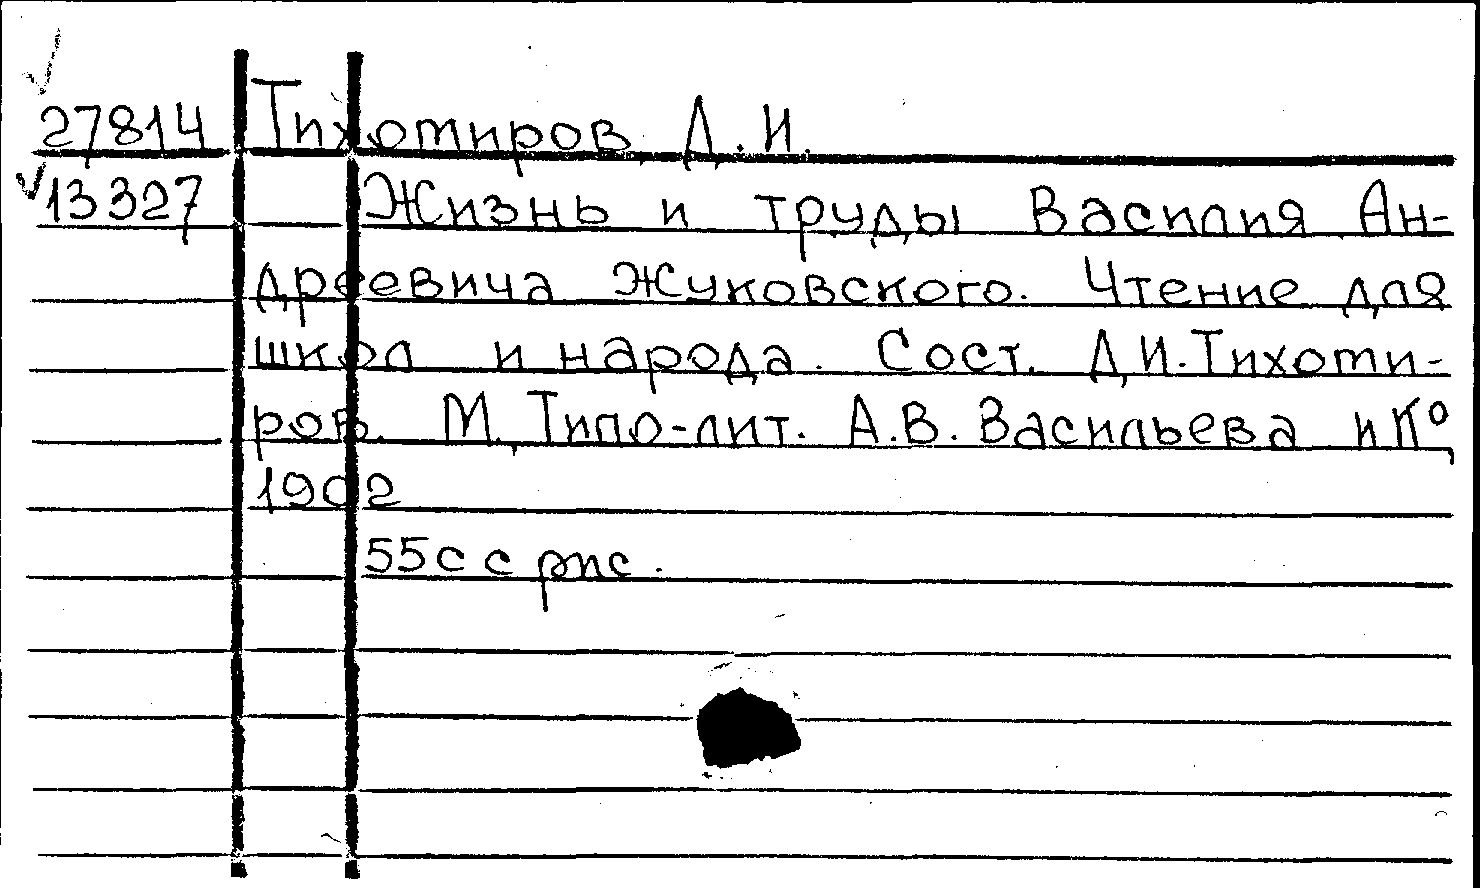 27814 Тихотиров Д.И.
13327 Жизнь и труды Василия Ан-
дреевича Жуковского. Чтение для
школ и народа. Сост. Д.И.Тихоти-
ров. М., Типо-лит. А.В.Васильева и Кº,
1902
55с с рис.